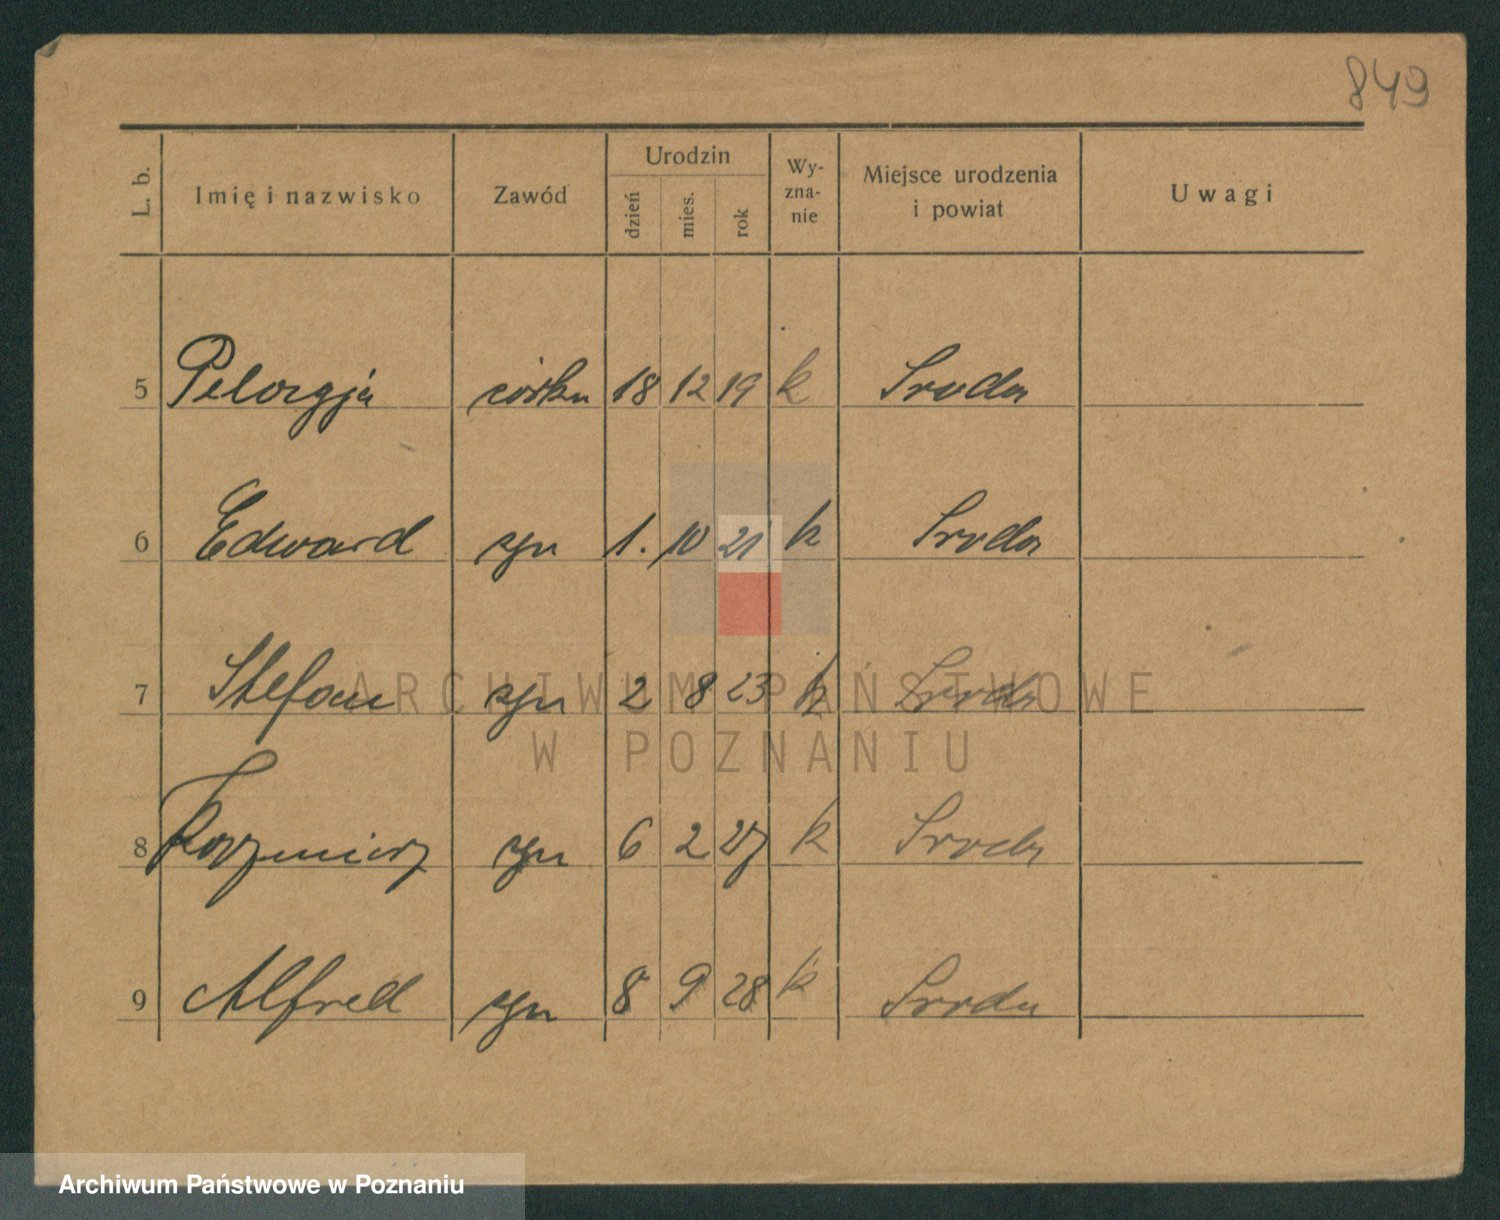 849
L. b. Imię i nazwisko Zawód Urodzin dzień mies. rok Wy-zna-nie Miejsce urodzenia i powiat Uwagi
5 Pelargja córka 18 12 19 k Sroda
6 Edward syn 1. 10 21 k Sroda
7 Stefan syn 2 8 23 k Sroda
ARCHIWUM PAŃSTWOWE
W POZNANIU
8 Kazmierz syn 6 2 27 k Sroda
9 Alfred syn 8 9 28 k Sroda
Archiwum Państwowe w Poznaniu